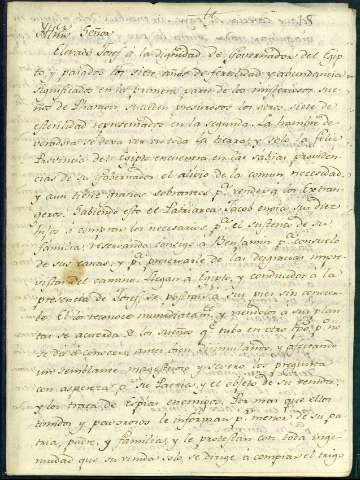 Illmo. Señor
Elevado Josef á la dignidad de Governador del Egip
to, y pasados los siete años de fertilidad y abundancia
significados en la primera parte de los misteriosos sue
ños de Pharaon, suceden presurosos los otros siete de
esterilidad representados en la segunda. La hambre de
voradora se deva ver en toda la tierra; y sola la feliz
Provincia del Egipto encuentra en las sabias providen
cias de su Governador el alivio de la comun necesidad
y aun tiene granos sobrantes pa. vender a los Extran
geros. Sabiendo esto el Patriarca Jacob envia sus diez
hijos a comprar los necesarios pa. el sustento de su
familia; reservando consigo a Benjamin pa. consuelo
de sus canas, y pa. preservarle de las desgracias impre
vistas del camino. Llegan a Egipto, y conducidos a la
presencia de Josef, se postran a sus pies sin conocer
lo. El los reconoce inmediatamte. y rendidos a sus plan
tas se acuerda de los sueños qe. tubo en otro tpo. pº. no
se da a conocer; antes bien disimulando, y afectando
un semblante magestuoso y severo los pregunta
con aspereza pr. su Patria, y el objeto de su venida;
y los trata de espias enemigos. Por mas que ellos
timidos y pavorosos le informan pr. menor de su pa
tria, padre, y familia, y le protestan con toda inge
nuidad que su venida solo se dirige á comprar el trigo